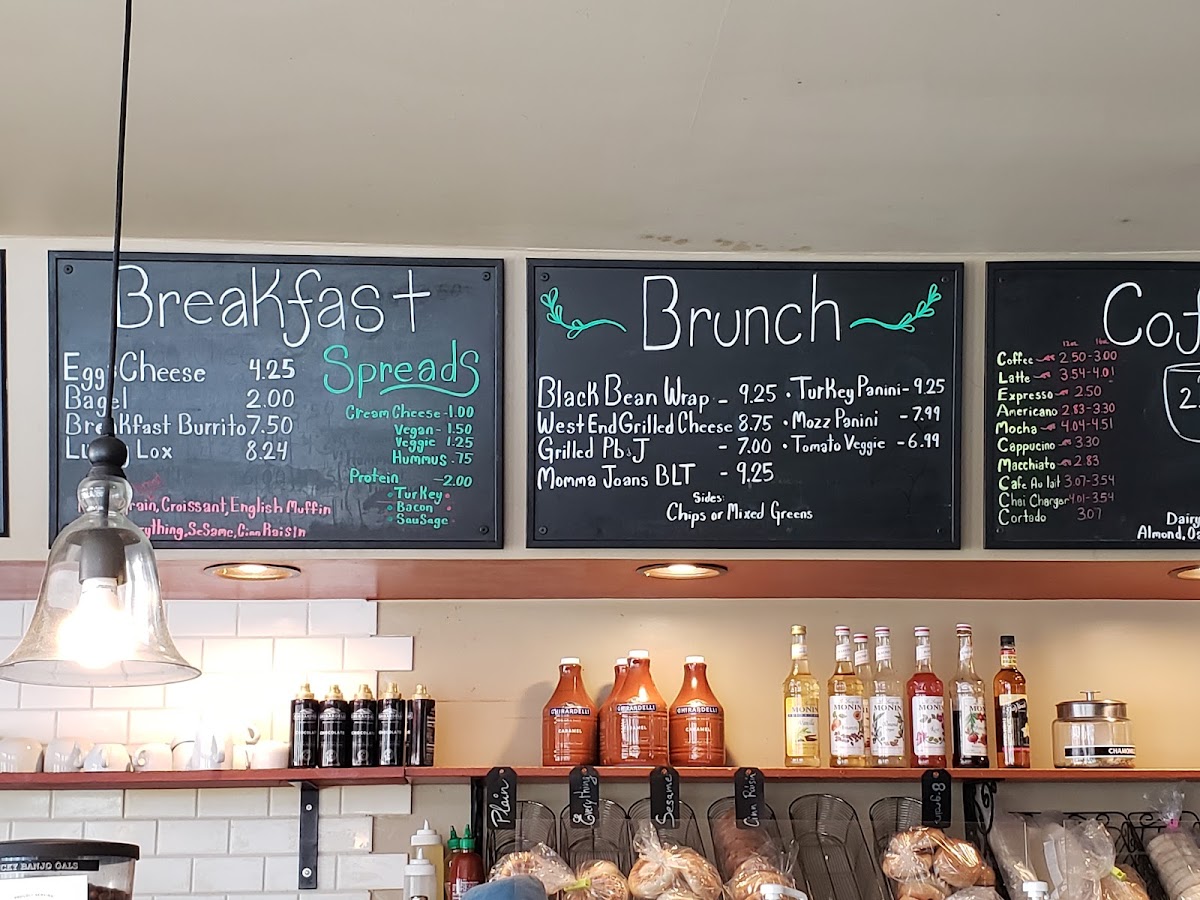 Breakfast
Egg Cheese 4.25
Bagel 2.00
Breakfast Burrito 7.50
Lox 8.24
Spreads
Cream Cheese - 1.00
Vegan - 1.50
Veggie 1.25
Hummus .75
Protein - 2.00
• Turkey •
• Bacon •
• Sausage
Croissant, English Muffin
Sesame, Cinn Raisin
Brunch
Black Bean Wrap - 9.25
West End Grilled Cheese 8.75
Grilled Pb&J - 7.00
Momma Joans BLT - 9.25
• Turkey Panini - 9.25
• Mozz Panini - 7.99
• Tomato Veggie - 6.99
Sides:
Chips or Mixed Greens
Cof
12oz 16oz
Coffee 2.50-3.00
Latte 3.54-4.01
Expresso 2.50
Americano 2.83-3.30
Mocha 4.04-4.51
Cappucino 3.30
Macchiato 2.83
Cafe Au lait 3.07-3.54
Chai Charger 4.01-3.54
Cortado 3.07
2.
Dairy
Almond, Oa
GHIRARDELLI
CARAMEL
GHIRARDELLI
CARAMEL
GHIRARDELLI
CARAMEL
CHOCOLATE
MONIN
MONIN
MONIN
MONIN
MONIN
CHAMOMI
Plain
Everything
Sesame
Cinn Raisin
8 grain
CKY BANJO OALS